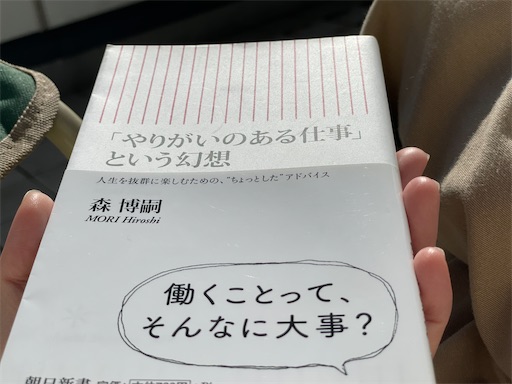 「やりがいのある仕事」
という幻想
人生を抜群に楽しむための、“ちょっとした”アドバイス
森 博嗣
MORI Hiroshi
働くことって、
そんなに大事？
朝日新書 定価：本体760円